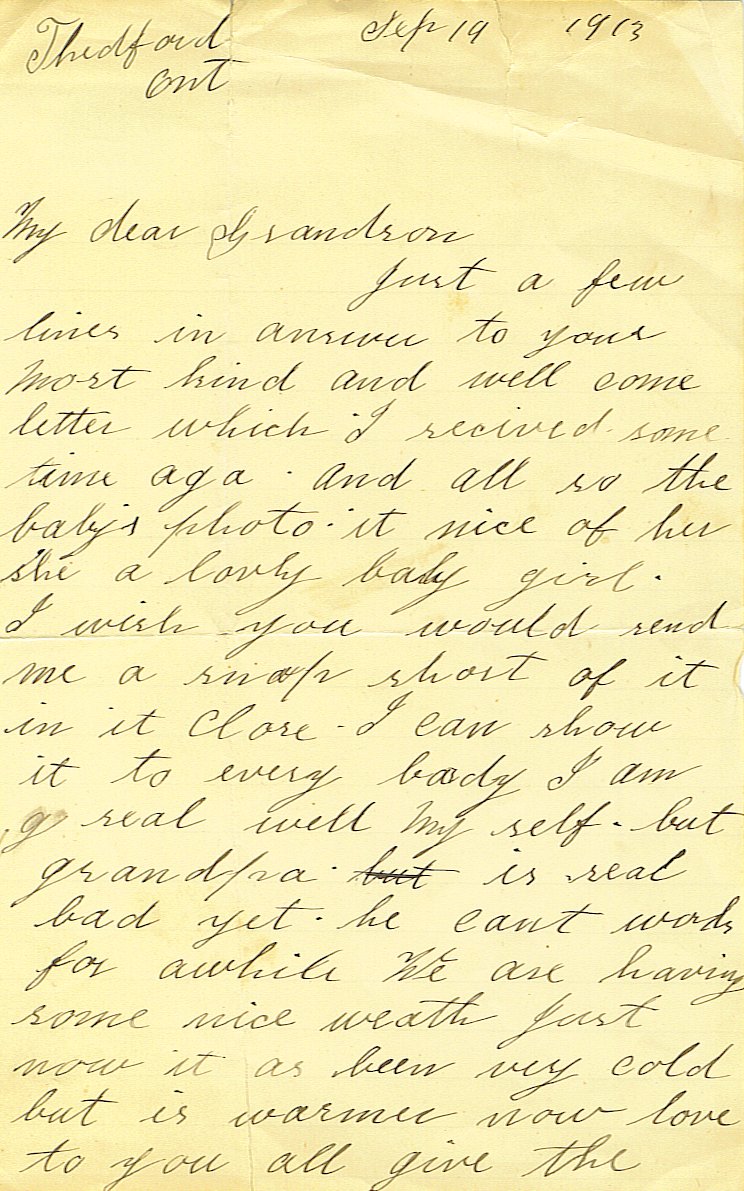 Thedford Sep 19 1913
Ont
My dear Grandson
Just a few
lines in answer to your
most kind and well come
letter which I recived some
time aga. and all so the
baby's photo. it nice of her
she a lovly baby girl.
I wish you would send
me a snap short of it
in it close. I can show
it to every boody I am
real well my self. but
grandpa. but is real
bad yet. he cant work
for awhile We are having
some nice weath just
now it as been very cold
but is warmer now love
to you all give the